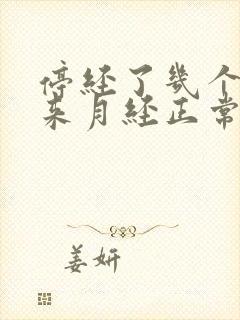 停经了几个
来月经正常
姜妍